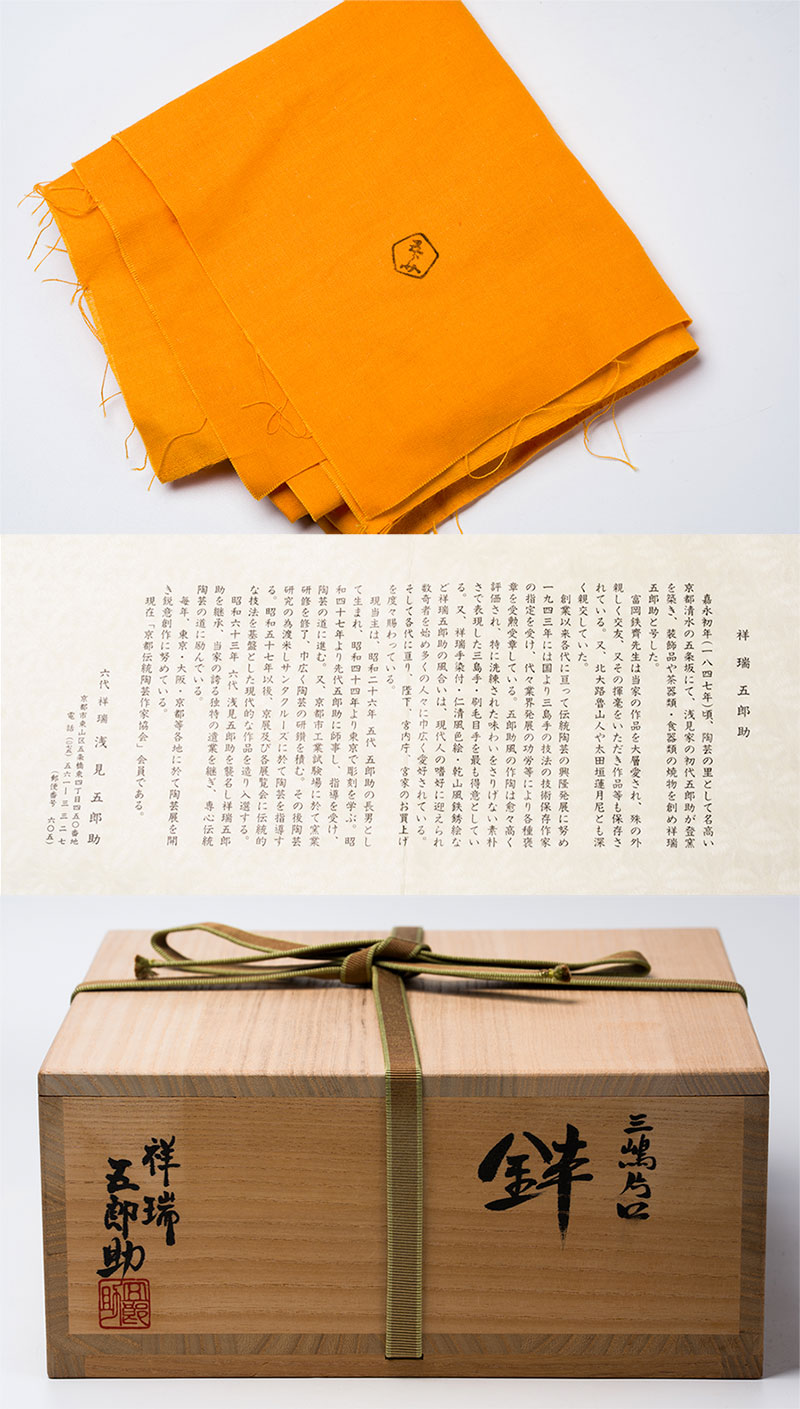 祥瑞五郎助
嘉永初年(一八四七年)頃、陶芸の里として名高い
京都清水の五条坂にて、浅見家の初代五郎助が登窯
を築き、装飾品や茶器類・食器類の焼物を創め祥瑞
五郎助と号した。
富岡鉄齊先生は当家の作品を大層愛され、殊の外
親しく交友、又その揮毫をいただき作品等も保存さ
れている。又、北大路魯山人や太田垣蓮月尼とも深
く親交していた。
創業以来各代に亘って伝統陶芸の興隆発展に努め
一九四三年には国より三島手の技法の技術保存作家
の指定を受け、代々業界発展の功労等により各種褒
章を受勲受章している。五郎助風の作陶は愈々高く
評価され、特に洗練された味わいをさりげない素朴
さで表現した三島手・刷毛目手を最も得意としてい
る。又、祥瑞手染付・仁清風色絵・乾山風鉄銹絵な
ど祥瑞五郎助の風合いは、現代人の嗜好に迎えられ
数奇者を始め多くの人々に巾広く愛好されている。
そして各代に亘り、陛下、宮内庁、宮家のお買上げ
を度々賜わっている。
現当主は、昭和二十六年 五代 五郎助の長男とし
て生まれ、昭和四十四年より東京で彫刻を学ぶ。昭
和四十七年より先代五郎助に師事し、指導を受け、
陶芸の道に進む。又、京都市工業試験場に於て窯業
研修を修了、巾広く陶芸の研鑽を積む。その後陶芸
研究の為渡米しサンタクルーズに於て陶芸を指導す
る。昭和五十七年以後、京展及び各展覧会に伝統的
な技法を基盤とした現代的な作品を造り入選する。
昭和六十三年 六代 浅見五郎助を襲名し祥瑞五郎
助を継承、当家の誇る独特の遺業を継ぎ、専心伝統
陶芸の道に励んでいる。
毎年、東京・大阪・京都等各地に於て陶芸展を開
き鋭意創作に努めている。
現在「京都伝統陶芸作家協会」会員である。
六代 祥瑞 浅見五郎助
京都市東山区五条橋東四丁目四五〇番地
電話(〇七五)五六一-三三二七
(郵便番号 六〇五)
三嶋片口
鉢
祥瑞
五郎助
五郎助